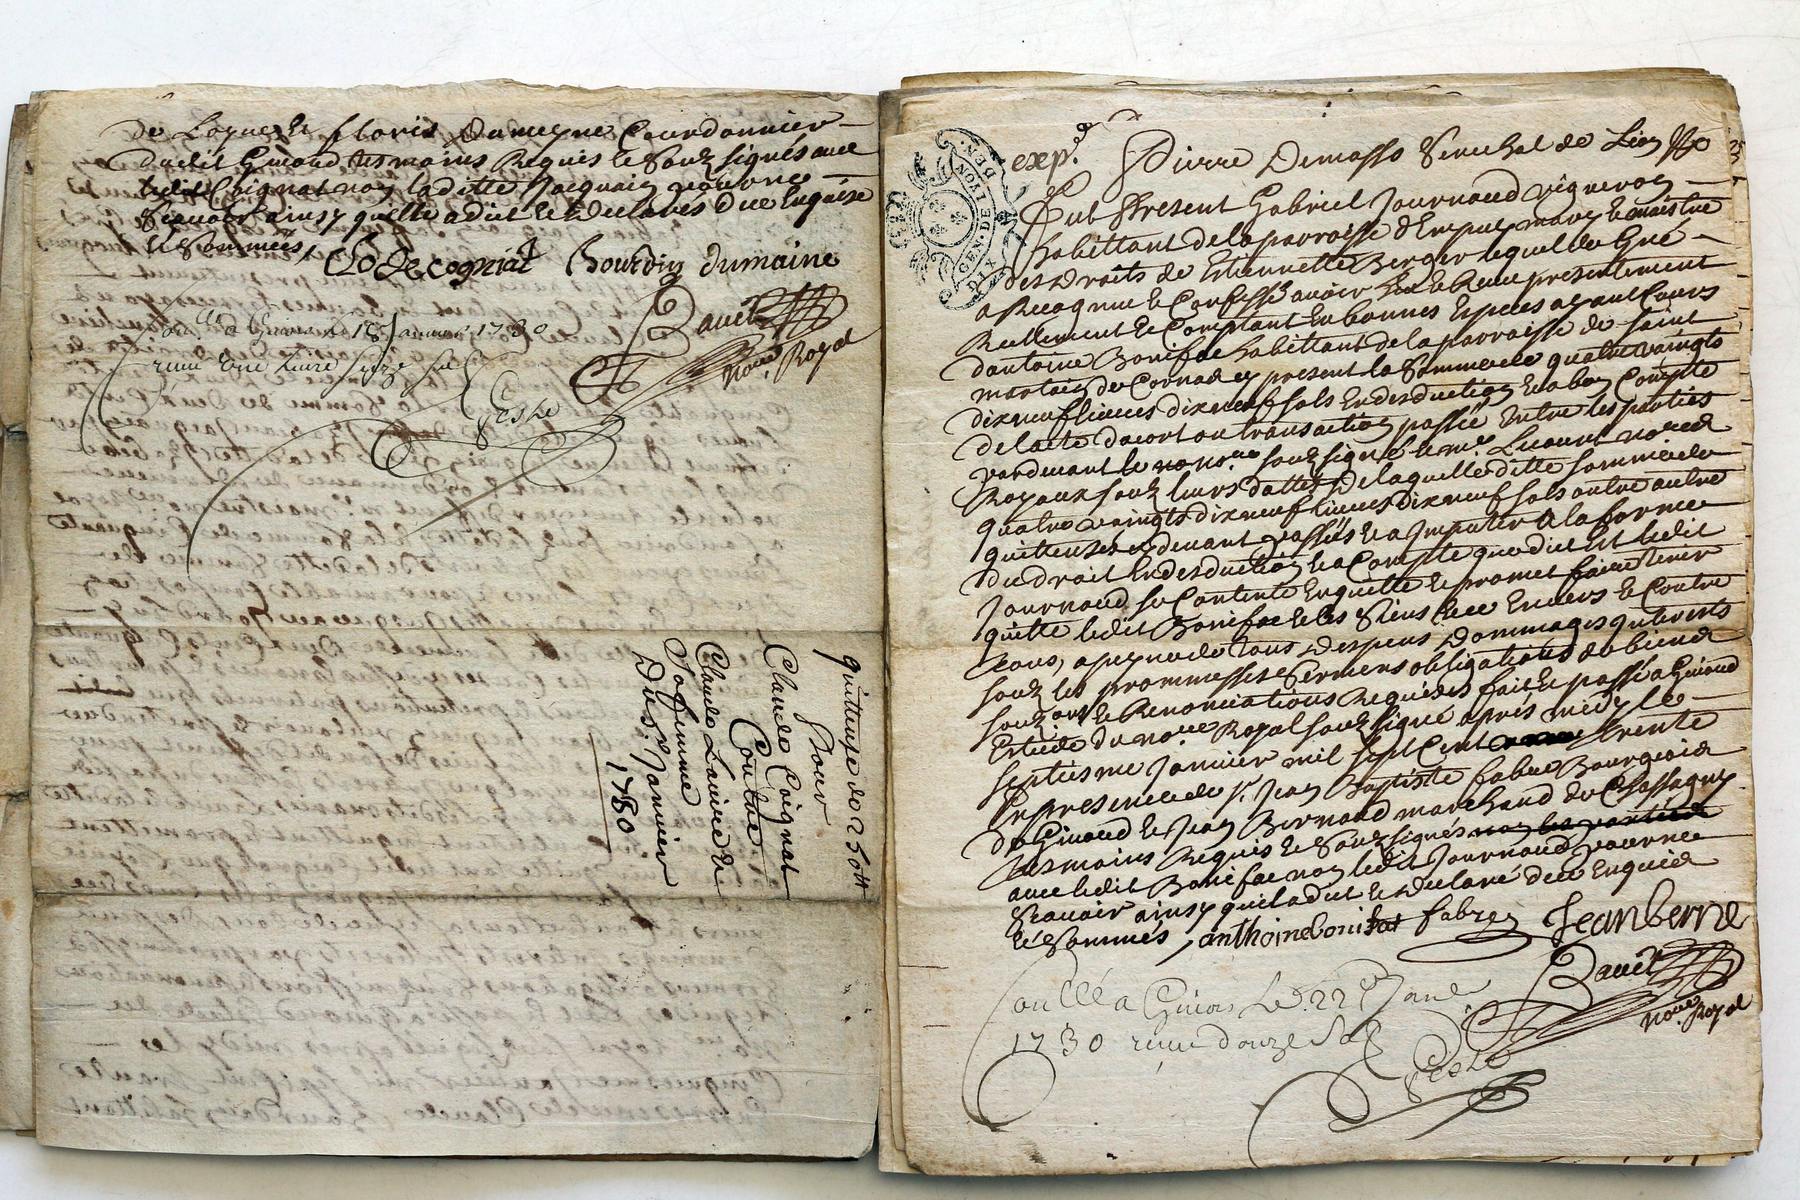 de Loyne et floris Dumeyne Courdonnier
dudit Givord tesmoins Requis et Soubsignés avec
ledit Coignat non laditte Jacquain pour ne
Scauoir ainsy quelle a dit et declarés d'uee Enquise
et Sommées,
Clodecogniat Bourdin dumaine
Bauet
Notre Royal
a Givors 18 Januier 1730
reçu une livre seize sols
Geste
quittense de 250 tt
pour
Claude Coignat
Contre
Claude Laniere et
Sa femme
Du 5e Janvier
1730
GEN. DE LYON. DIX DEN.
exp.
Pierre Demasso Senechal de Lion
fut Present Gabriel Journoud vigneron
habittant de la parroisse d'Empuy mary et maistre
des droits de Etiennette Berger lequel de Gré
a Recognue et Confessé avoir heu et Receu presentement
Reellement et Comptant en bonnes Especes ayant Cours
d'antoine Boniface habittant de la parroisse de Saint
martin de Cornas cy present la Somme de quatre vaingts
dixneuf livres dixneuf sols En desduction et a bon Compte
de l'acte d'acort ou transaction passée Entre les parties
pardevant le no.re soubsigné et me. Lieurat notres
Royaux soubs leurs dattes, De laquelle ditte somme de
quatre vaingts dixneuf livres dixneuf sols outre autre
quittenses cy devant passées et a Imputer a la forme
du droit En desduction et a Compte que dit est ledit
Journoud se Contente En quitte et promet faire tenir
quitte ledit Boniface et les Siens d'uee Envers et Contre
tous, a peyne de tous despens Dommages Interests
soubs les prommesses sermens obligations de biens
soub.ons et Renonciations Requises fait et passé a Givord
Estude du notre Royal soubsigné apres midy le
septiesme Janvier mil sept Cent trente
En presence de Sr. Jean Baptiste fabre Bourgeois
de Givord et Jean Bernard marchand de Chassagny
tesmoins Requis et Soubsignés non les parties
avec ledit Boniface non ledit Journoud pour ne
Scauoir ainsy quil a dit et declaré d'uee Enquis
et Sommés, anthoine bonifat fabre Jean berne
Bauet
Notre Royal
conllé a Givors Le 22e Janv.
1730 reçu douze sols
Geste